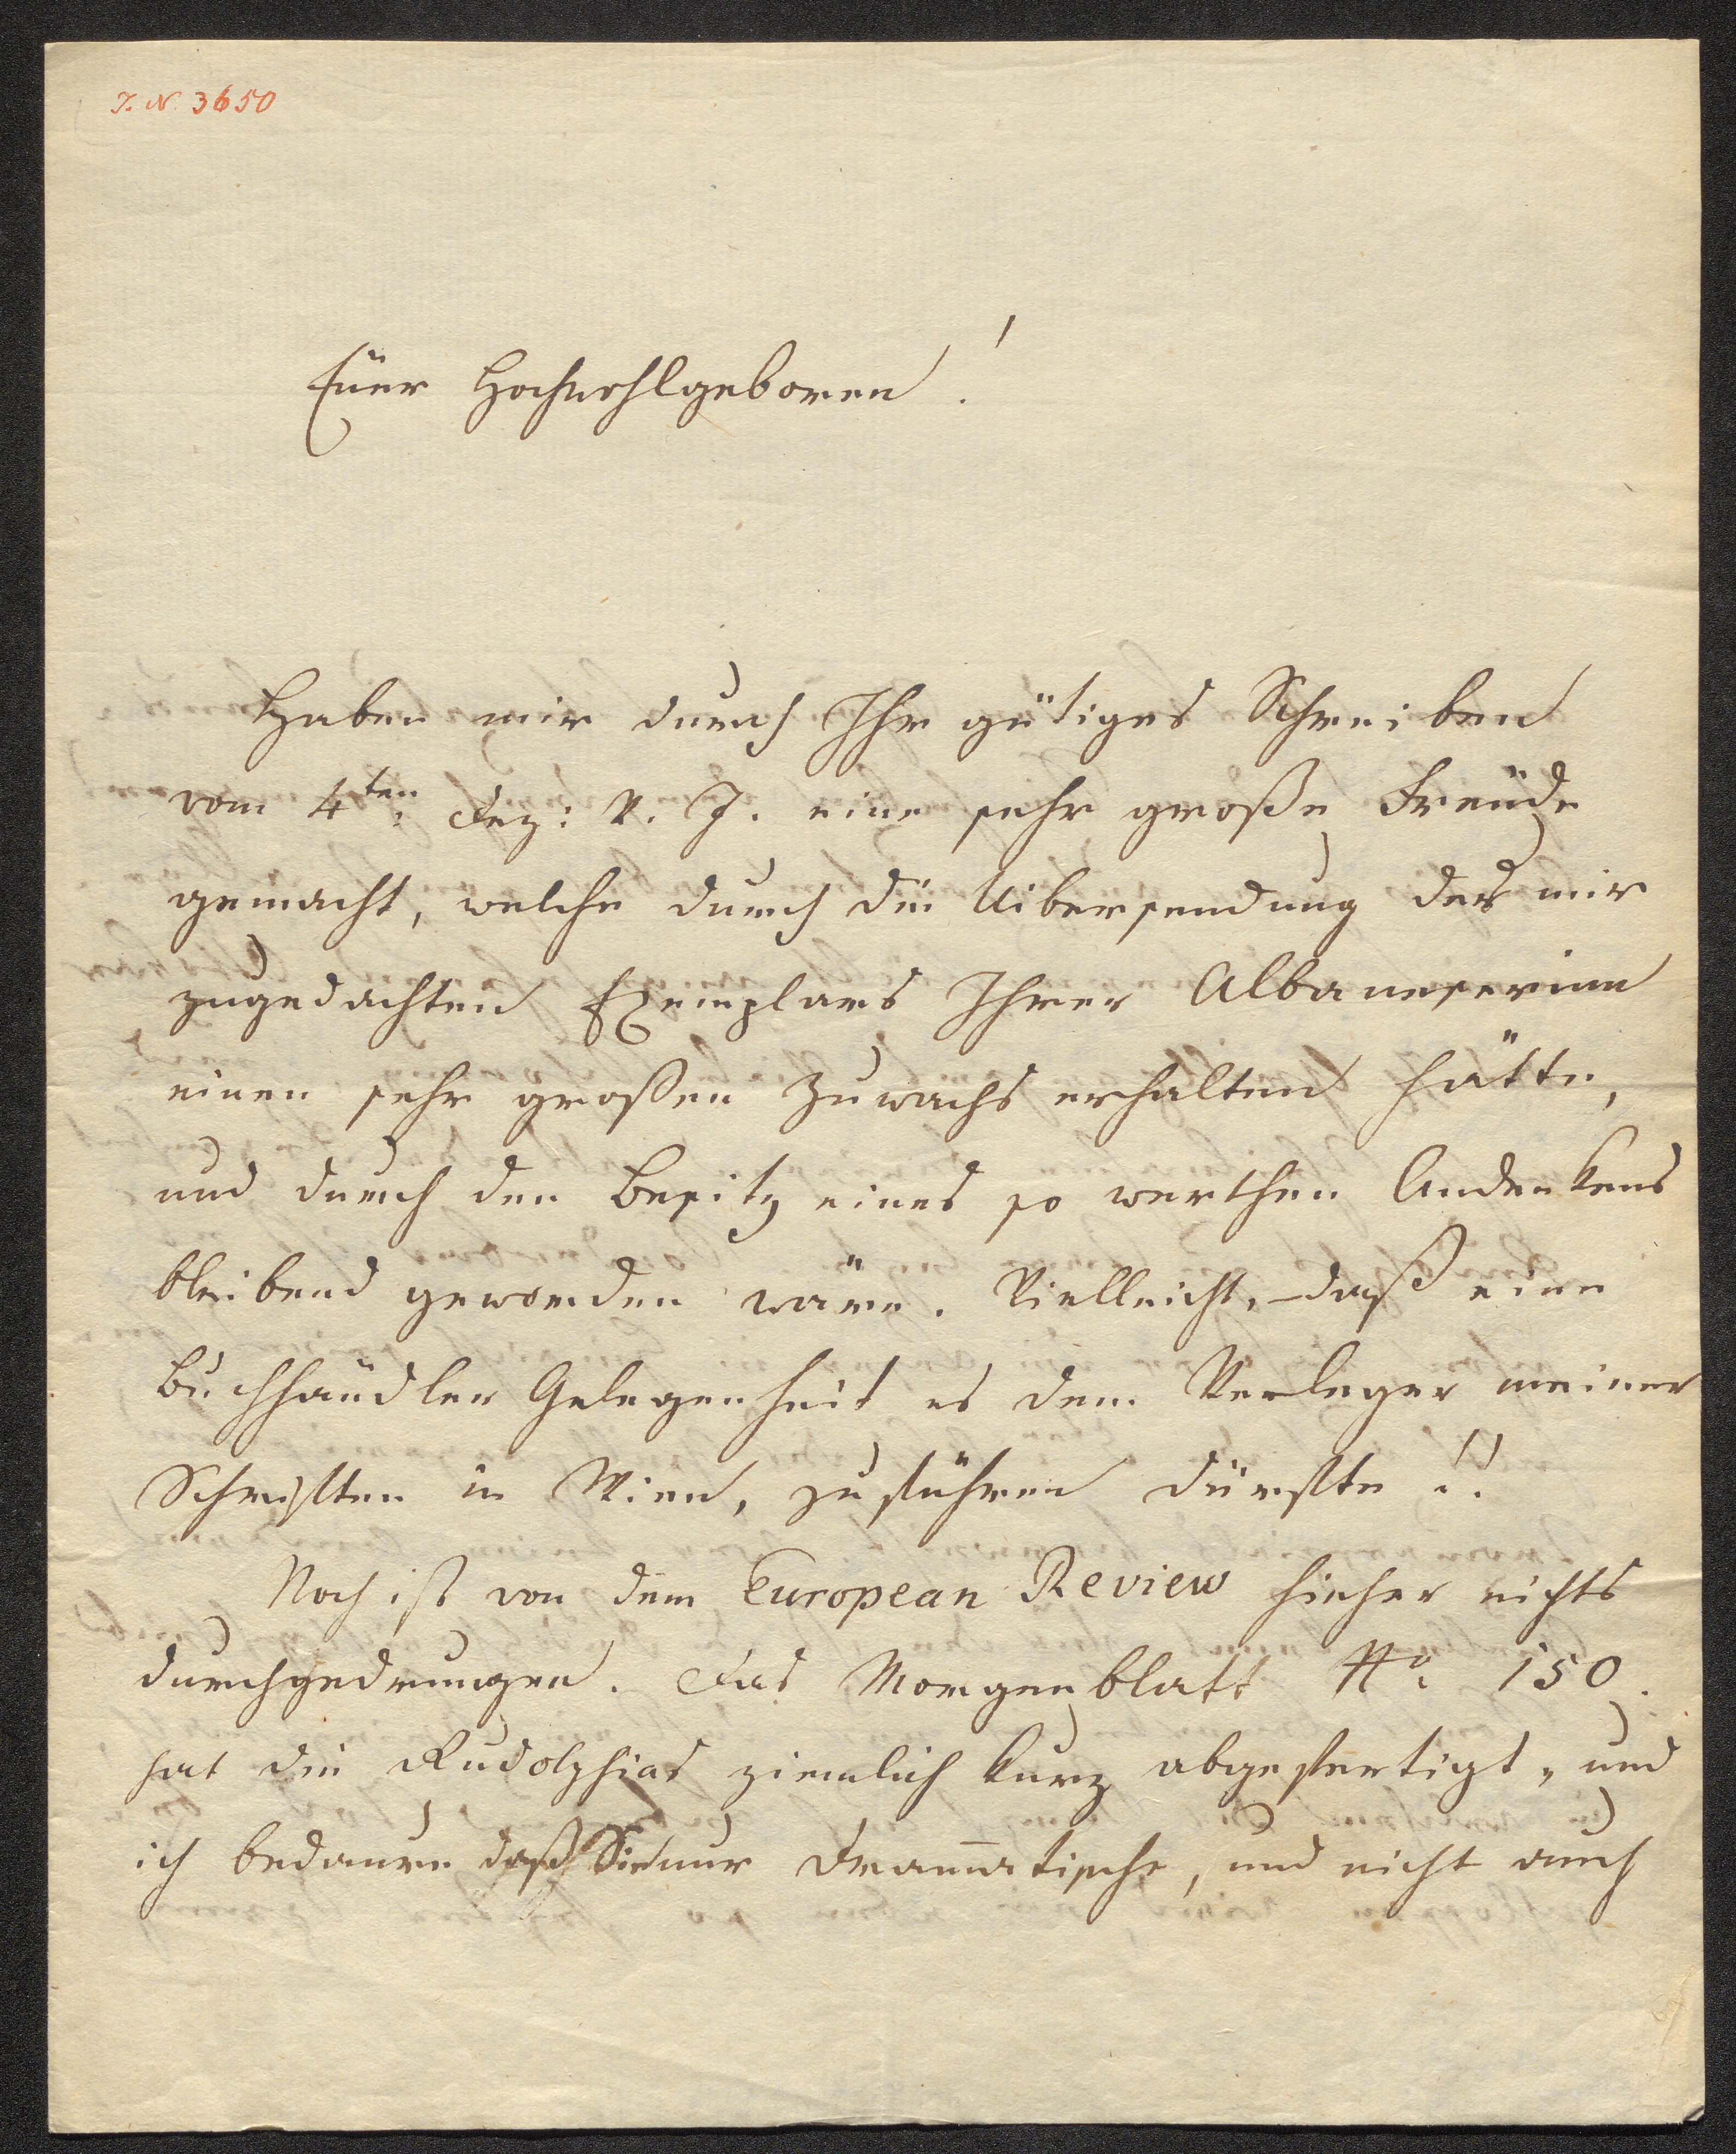 I. N. 3650
Euer Hochwohlgeboren!
Haben mir durch Ihr gütiges Schreiben
vom 4ten: Dez: v. J. eine sehr große Freude
gemacht, welche durch die Uibersendung des mir
zugedachten Exemplars Ihrer Albaneserinn
einen sehr großen Zuwachs erhalten hätte,
und durch den Besitz eines so werthen Andenkens
bleibend geworden wäre. Vielleicht, daß eine
Buchhändler Gelegenheit es dem Verleger meiner
Schriften in Wien, zuführen dürfte!!
Noch ist von dem European Review hieher nichts
durchgedrungen. Das Morgenblatt No 150.
hat die Rudolphias ziemlich kurz abgefertigt, und
ich bedaure daß Sie nur Dramatische, und nicht auch